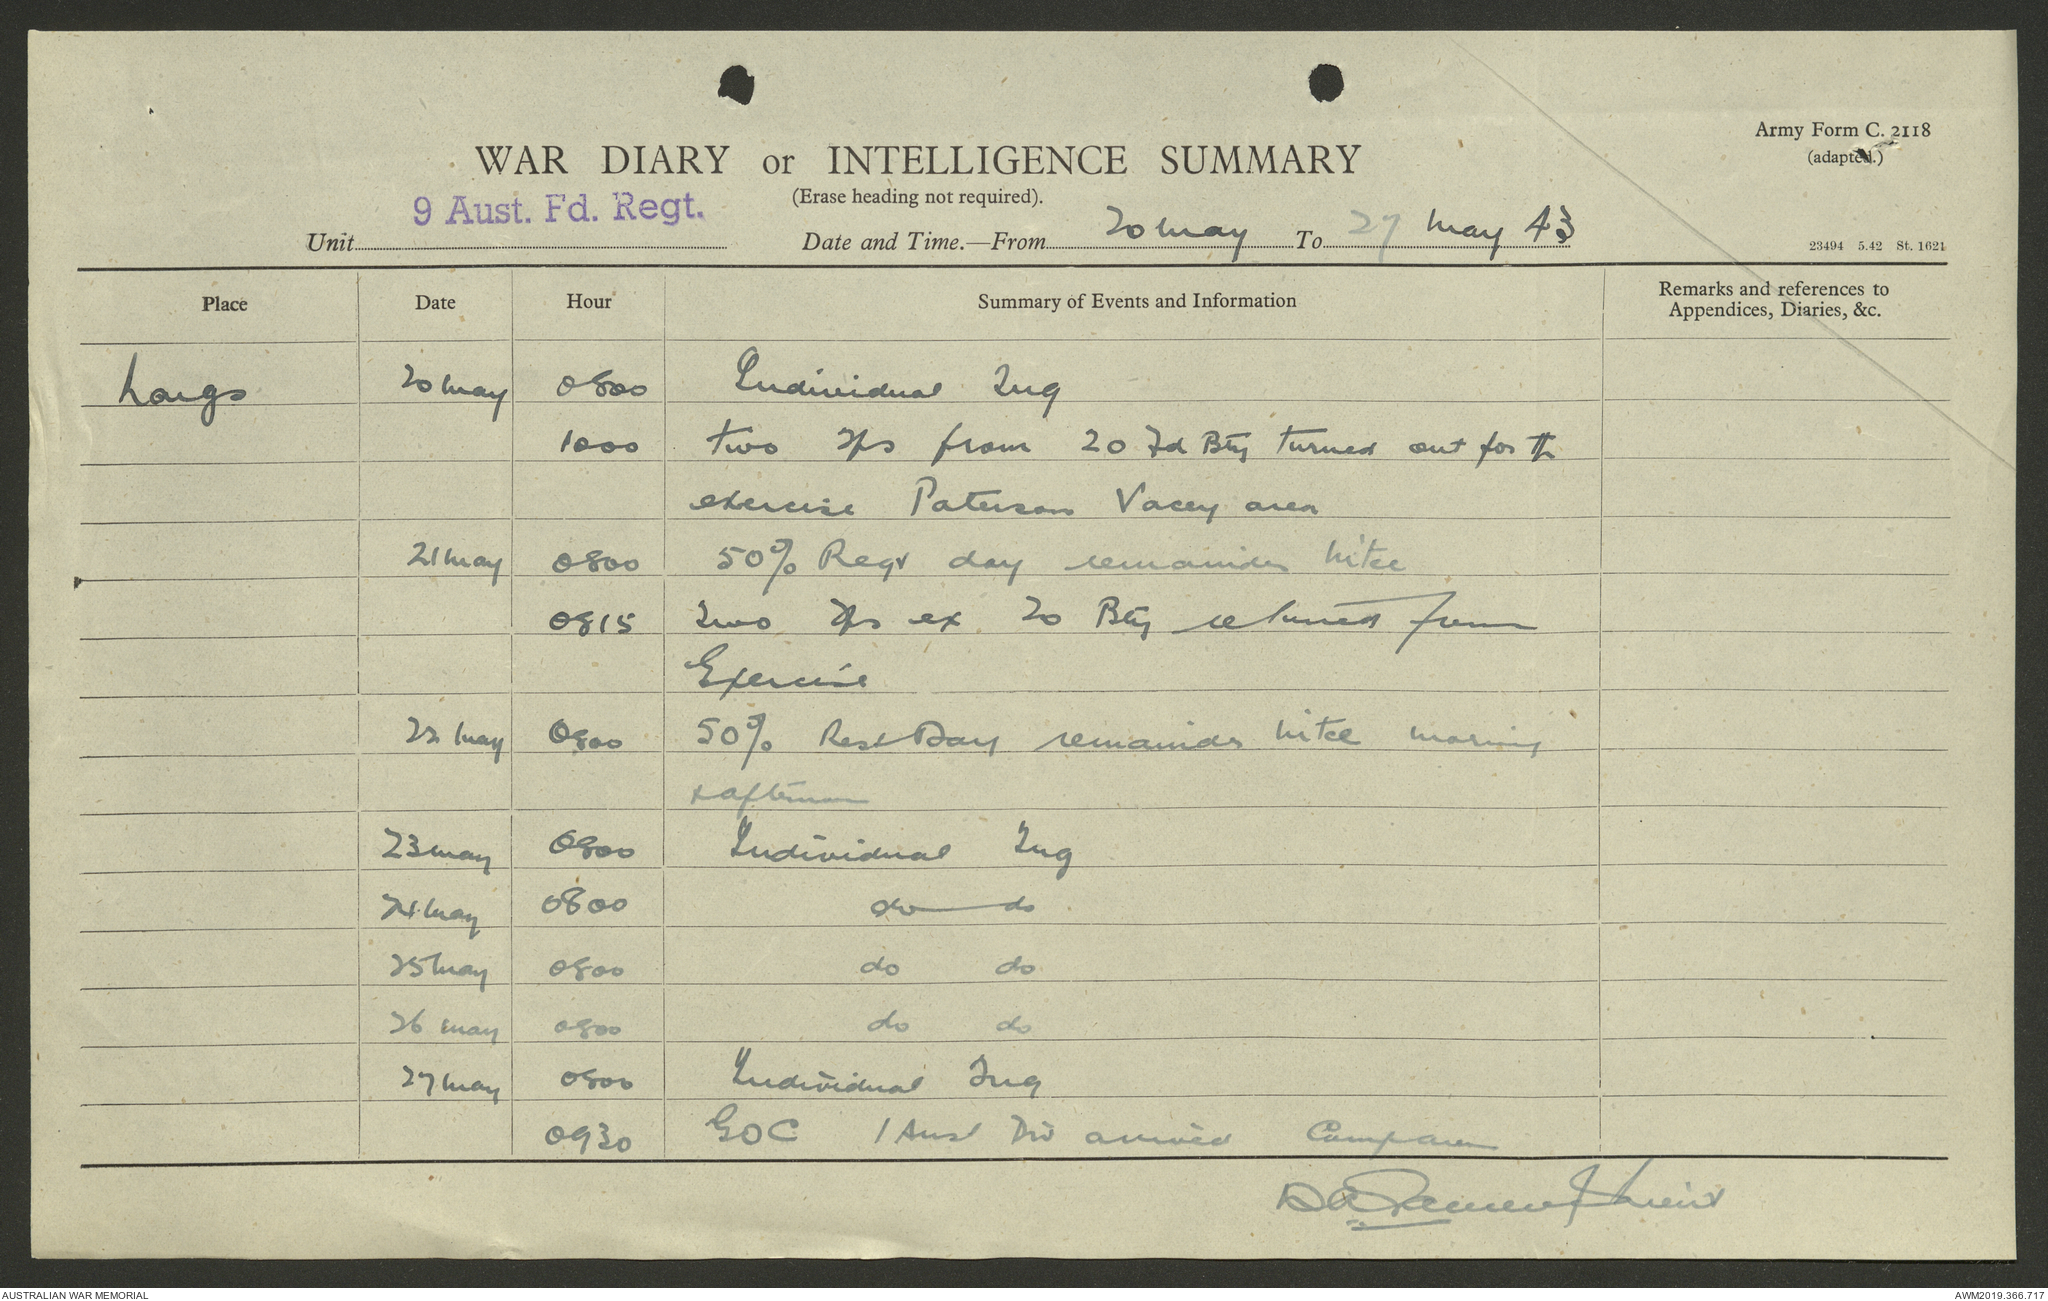 Army Form C. 2118
(adapted.)
WAR DIARY or INTELLIGENCE SUMMARY
(Erase heading not required).
Unit 9 Aust. Fd. Regt. Date and Time.—From 20 May To 27 May 43
23494 5.42 St. 1621
Place Date Hour Summary of Events and Information Remarks and references to
Appendices, Diaries, &c.
Largs 20 May 0800 Individual Tng
1000 two Tps from 20 Fd Bty turned out for
exercise Paterson Vacey area
21 May 0800 50% day remainder
0815 two Tps ex 20 Bty returned from
Exercise
22 May 0800 50% Rest Day remainder morning
& afternoon
23 May 0800 Individual Tng
24 May 0800 do do
25 May 0800 do do
26 May 0800 do do
27 May 0800 Individual Tng
0930 GOC 1 Aust Div arrived Camp area
AUSTRALIAN WAR MEMORIAL
AWM2019.366.717